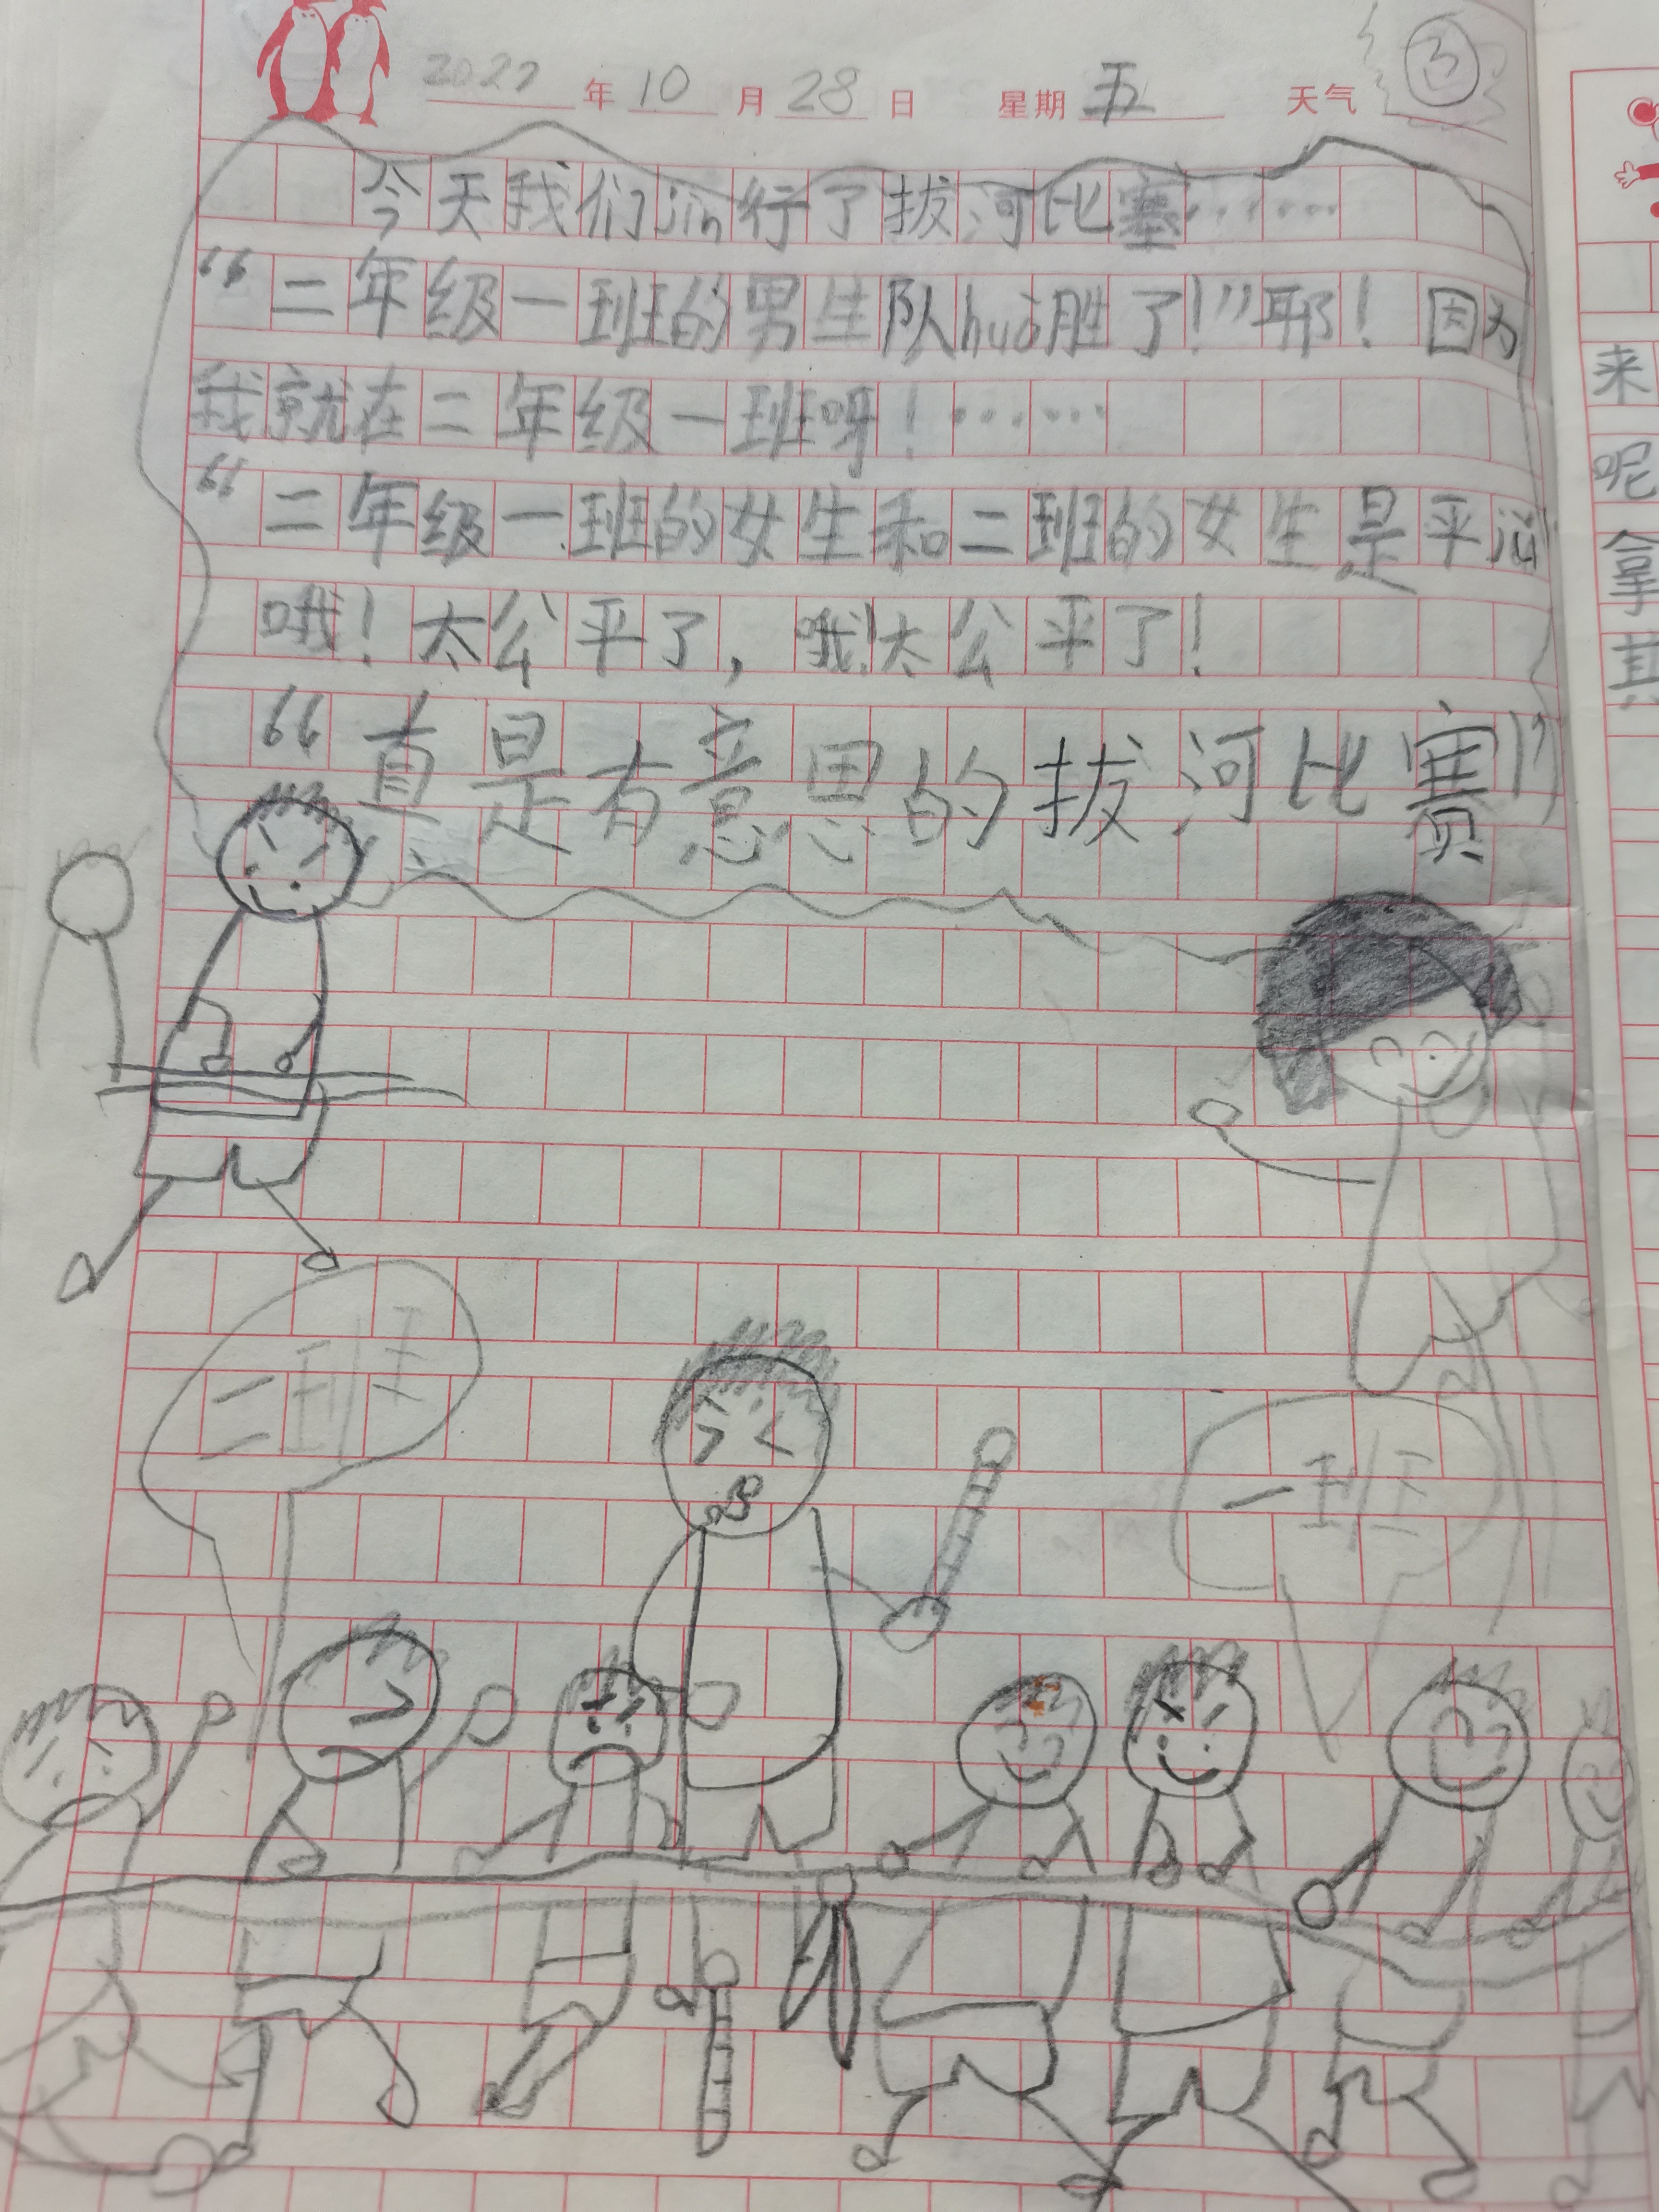 2022年10月28日 星期五 天气
今天我们jin行了拔河比塞……
“二年级一班的男生队huò胜了!”耶!因为
我就在二年级一班呀!……
“二年级一班的女生和二班的女生是平
哦!太公平了,哦!太公平了!
“真是有意思的拔河比赛!”
二班
一班
来
呢
拿
其